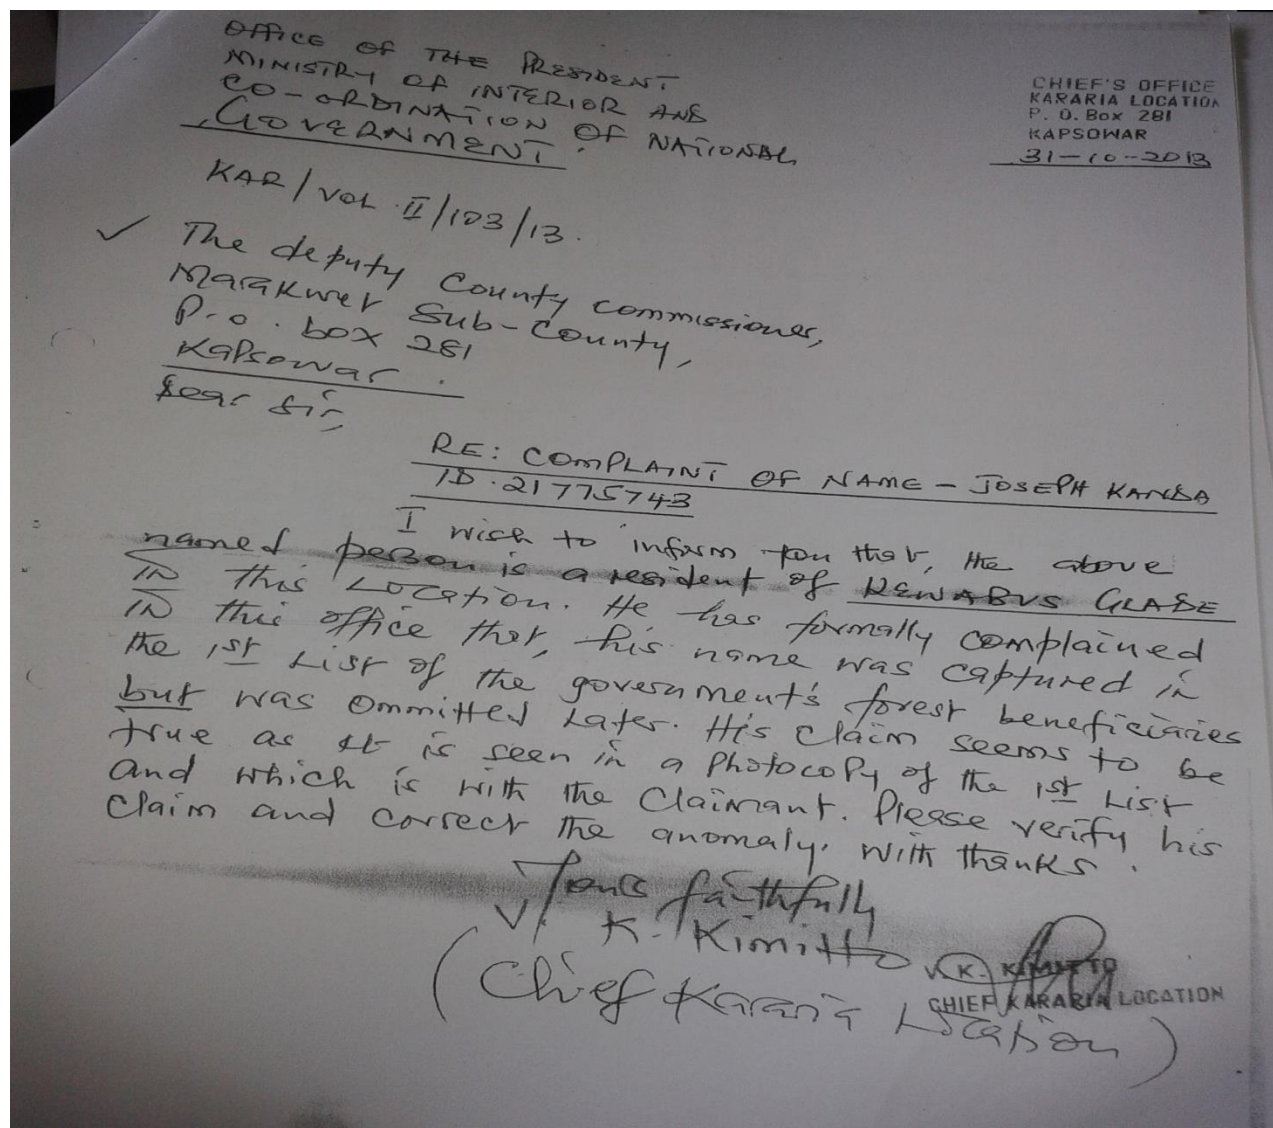 OFFICE OF THE PRESIDENT
MINISTRY OF INTERIOR AND
CO-ORDINATION OF NATIONAL
GOVERNMENT.
CHIEF'S OFFICE
KARARIA LOCATION
P. O. Box 281
KAPSOWAR
31-10-2013
KAR/VOL.II/103/13.
✓ The deputy County commissioner,
Marakwet Sub-County,
P.o. box 281
Kapsowar.
Dear Sir,
RE: COMPLAINT OF NAME - JOSEPH
ID.21775743
I wish to inform you that, the above
named person is a resident of GLADE
IN this Location. He has formally complained
IN this office that, his name was captured in
the 1st List of the government's forest beneficiaries
but was ommitted Later. His claim seems to be
true as it is seen in a Photocopy of the 1st List
and which is with the Claimant. Please verify his
Claim and correct the anomaly. With thanks.
Yours faithfully
K. Kimitto
V. K. KIMITTO
CHIEF KARARIA LOCATION
(Chief Kararia Location)